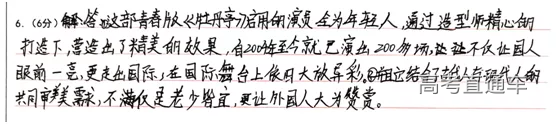 6.(6分)答:这部青春版《牡丹亭》启用的演员全为年轻人,通过造型师精心的
打造下,营造出了精美的效果,自2004年至今就已演出200多场,不仅让国人
眼前一亮,更走出国际,在国际舞台上依旧大放异彩。②粗立结合了古代人与现代人的
共同审美需求,不满仅是老少皆宜,更让外国人大为赞赏。
高考直通车